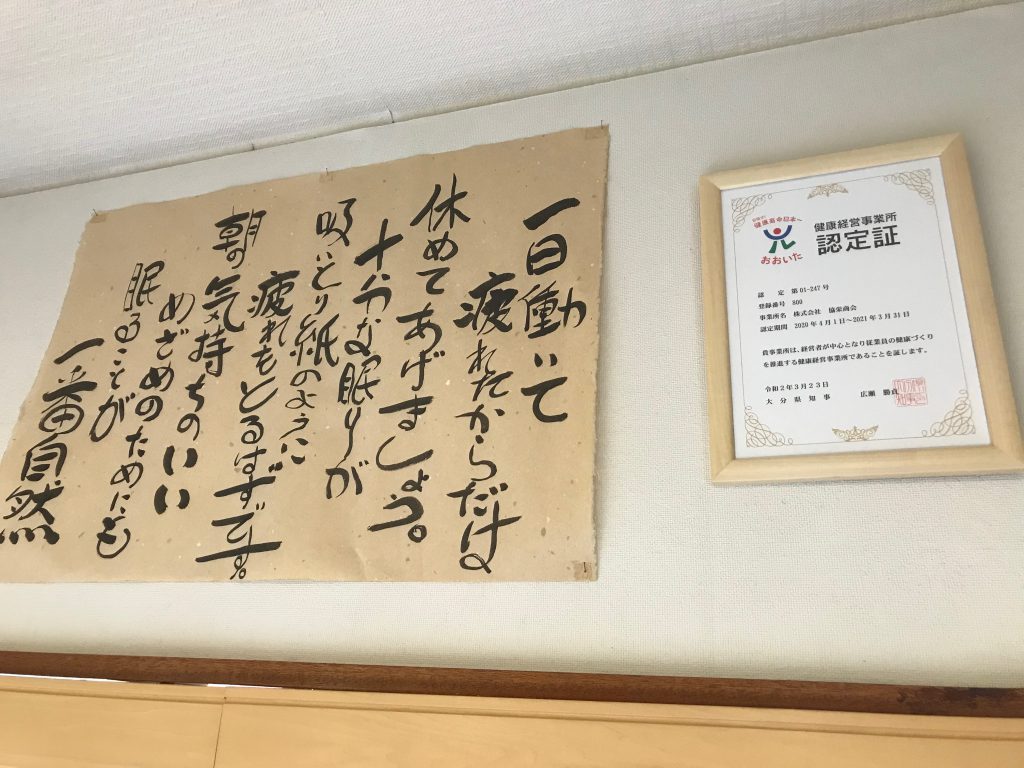 一日働いて
疲れたからだは
休めてあげましょう。
十分な眠りが
吸いとり紙のように
疲れもとるはずです。
朝の気持ちのいい
めざめのためにも
眠ることが
一番自然
健康寿命日本一へ
おおいた
健康経営事業所
認定証
認 定 第01-247号
登録番号 800
事業所名 株式会社 協栄商会
認定期間 2020年4月1日～2021年3月31日
貴事業所は、経営者が中心となり従業員の健康づくり
を推進する健康経営事業所であることを証します。
令和2年3月23日
大分県知事 広瀬 勝貞